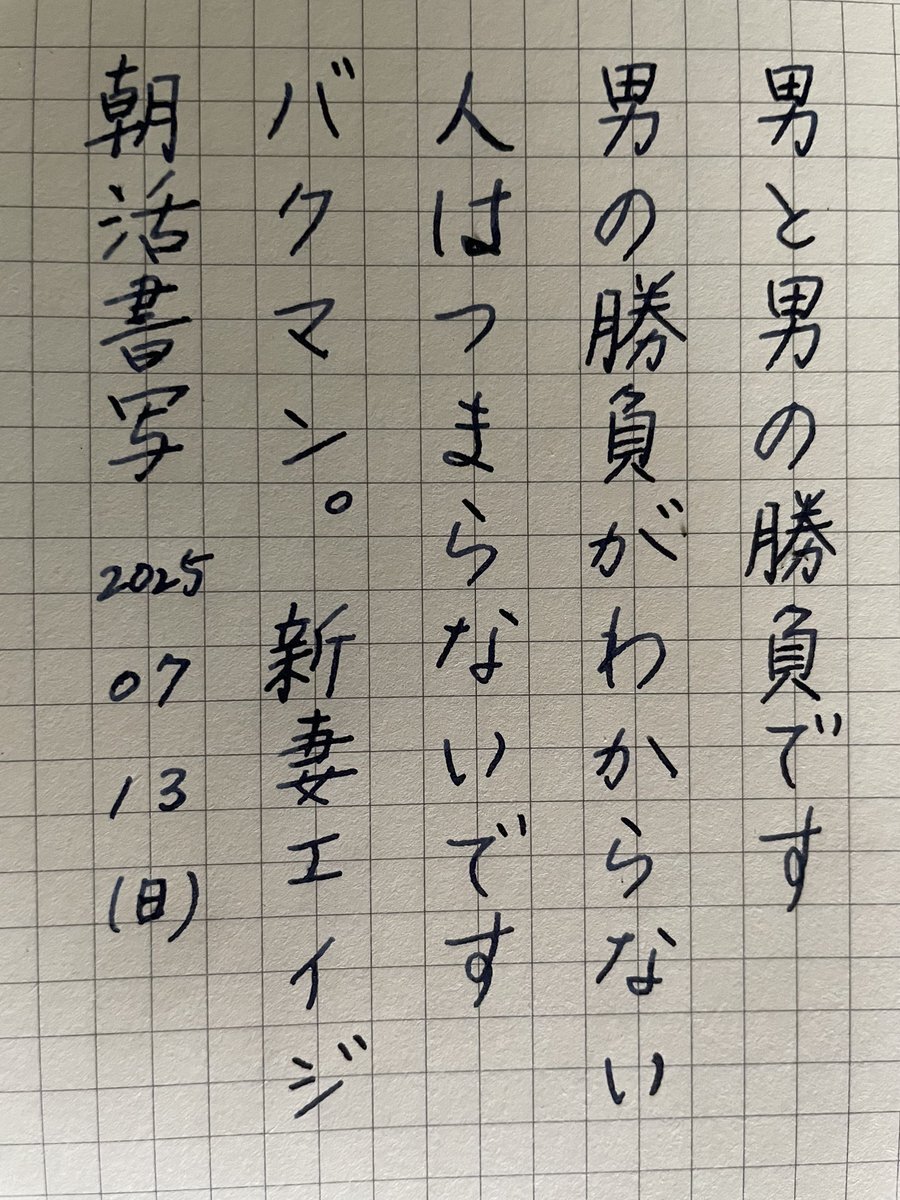 男と男の勝負です
男の勝負がわからない
人はつまらないです
バクマン。 新妻エイジ
朝活書写 2025 07 13 (日)